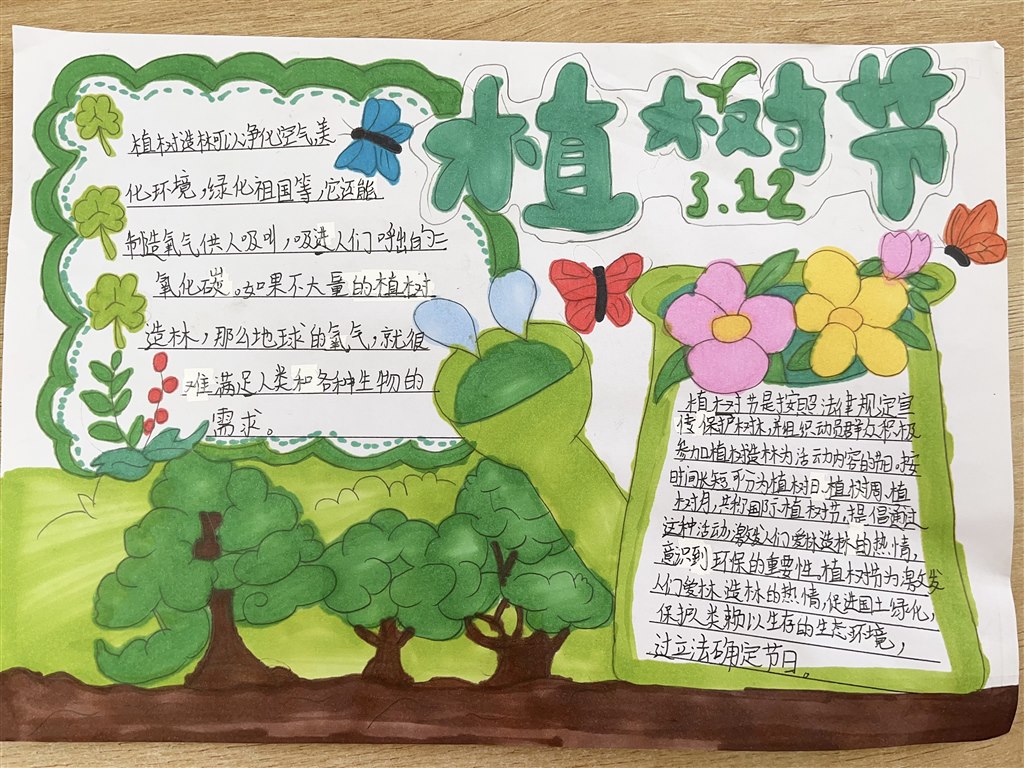 植树节
3.12
植树造林可以净化空气,美
化环境,绿化祖国等,它还能
制造氧气供人吸叫,吸进人们呼出的二
氧化碳。如果不大量的植树
造林,那么地球的氧气,就很
难满足人类和各种生物的
需求。
植树节是按照法律规定宣
传保护树林,并组织动员群众积极
参加植树造林为活动内容的节日。按
时间长短可分为植树日、植树周、植
树月,共称国际植树节,提倡通过
这种活动,激发人们爱林造林的热情,
意识到环保的重要性。植树节为激发
人们爱林、造林的热情,促进国土绿化,
保护人类赖以生存的生态环境,
过立法确定节日。